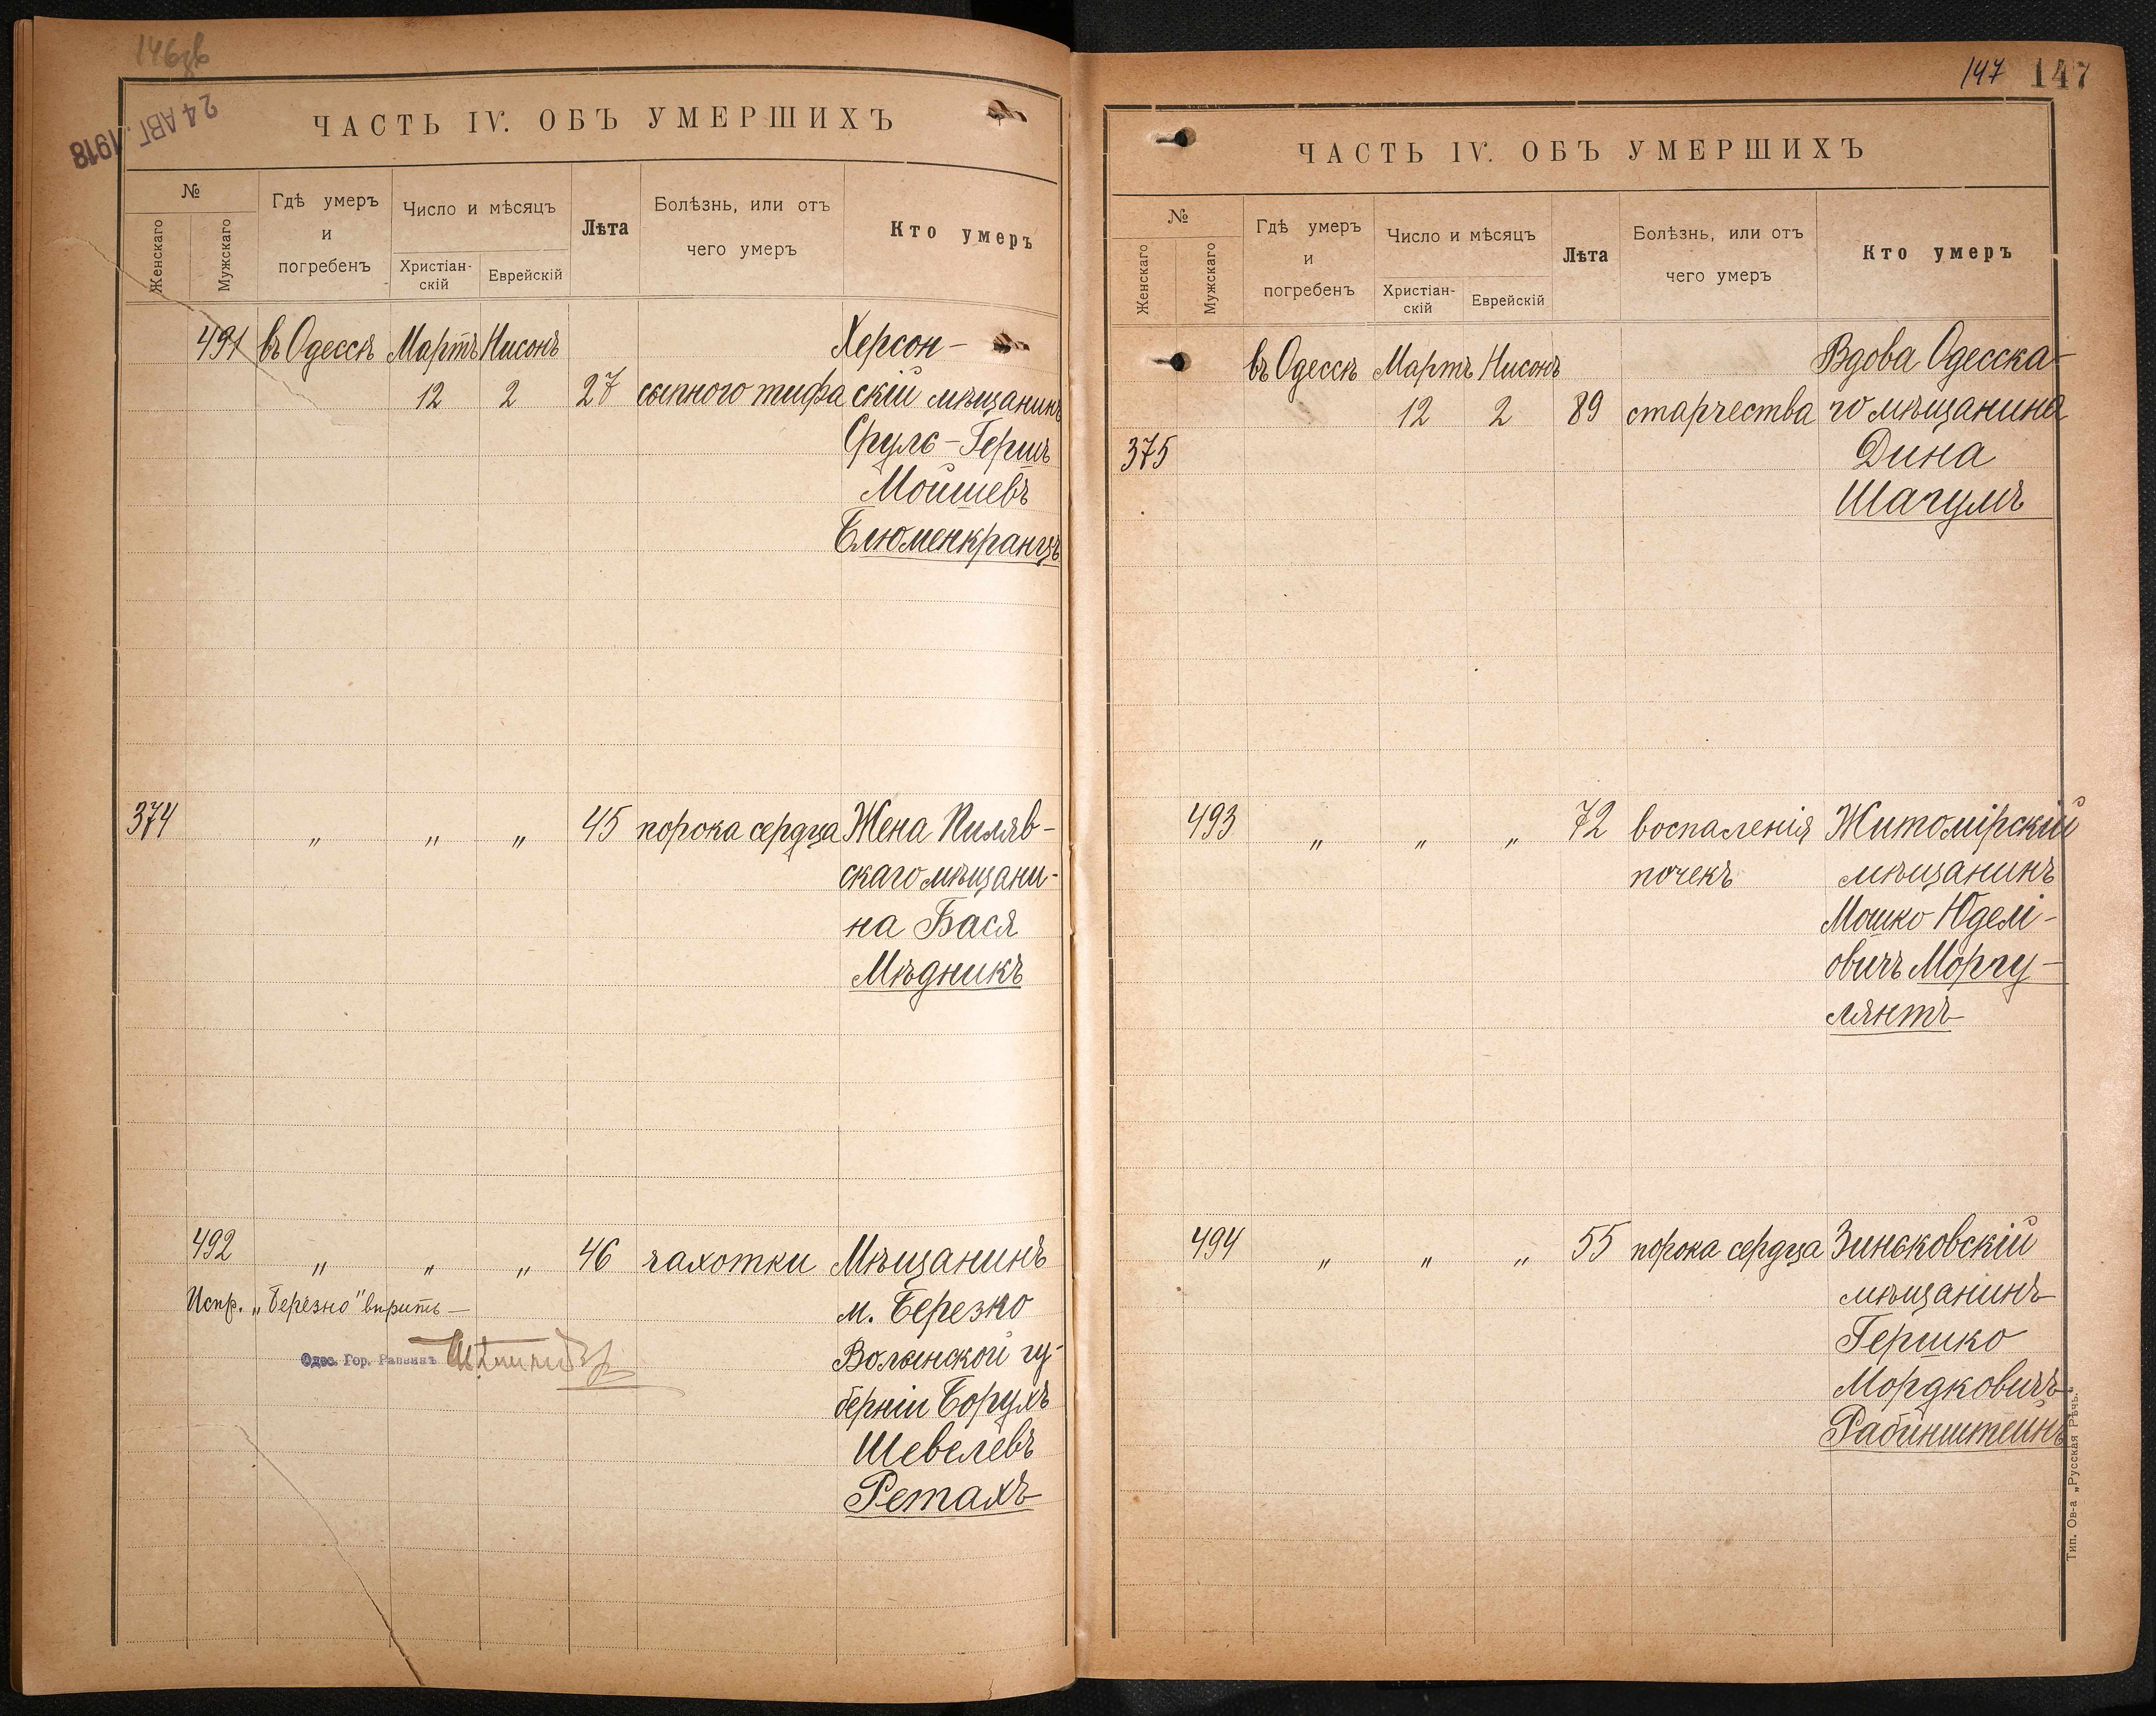 146об
24 АВГ. 1918
ЧАСТЬ IV. ОБЪ УМЕРШИХЪ
№
Женскаго
Мужскаго
Гдѣ умеръ
и
погребенъ
Число и мѣсяцъ
Христіан-
скій
Еврейскій
Лѣта
Болѣзнь, или отъ
чего умеръ
Кто умеръ
491 въ Одессѣ Мартъ Нисонъ Херсон-
12 2 27 сыпного тифа скій мѣщанинъ
Сруль-Гершъ
Мойшевъ
Блюменкранцъ
374 " " " 45 порока сердца Жена Пиляв-
скаго мѣщани-
на Бася
Мѣдникъ
492 " " " 46 чахотки Мѣщанинъ
Испр. „Березно" вѣрить —
м. Березно
Одес. Гор. Раввинъ
Волынской гу-
берніи Борухъ
Шевелевъ
Ретахъ
147 147
ЧАСТЬ IV. ОБЪ УМЕРШИХЪ
№
Женскаго
Мужскаго
Гдѣ умеръ
и
погребенъ
Число и мѣсяцъ
Христіан-
скій
Еврейскій
Лѣта
Болѣзнь, или отъ
чего умеръ
Кто умеръ
въ Одессѣ Мартъ Нисонъ Вдова Одесска-
12 2 89 старчества го мѣщанина
375 Дина
Шагулъ
493 " " " 72 воспаленія Житомірскій
почекъ мѣщанинъ
Мошко Юделі-
овичъ Моргу-
лянтъ
494 " " " 55 порока сердца Зиньковскій
мѣщанинъ
Гершко
Мордковичъ
Рабинштейнъ
Тип. Ов-а „Русская Рѣчь."